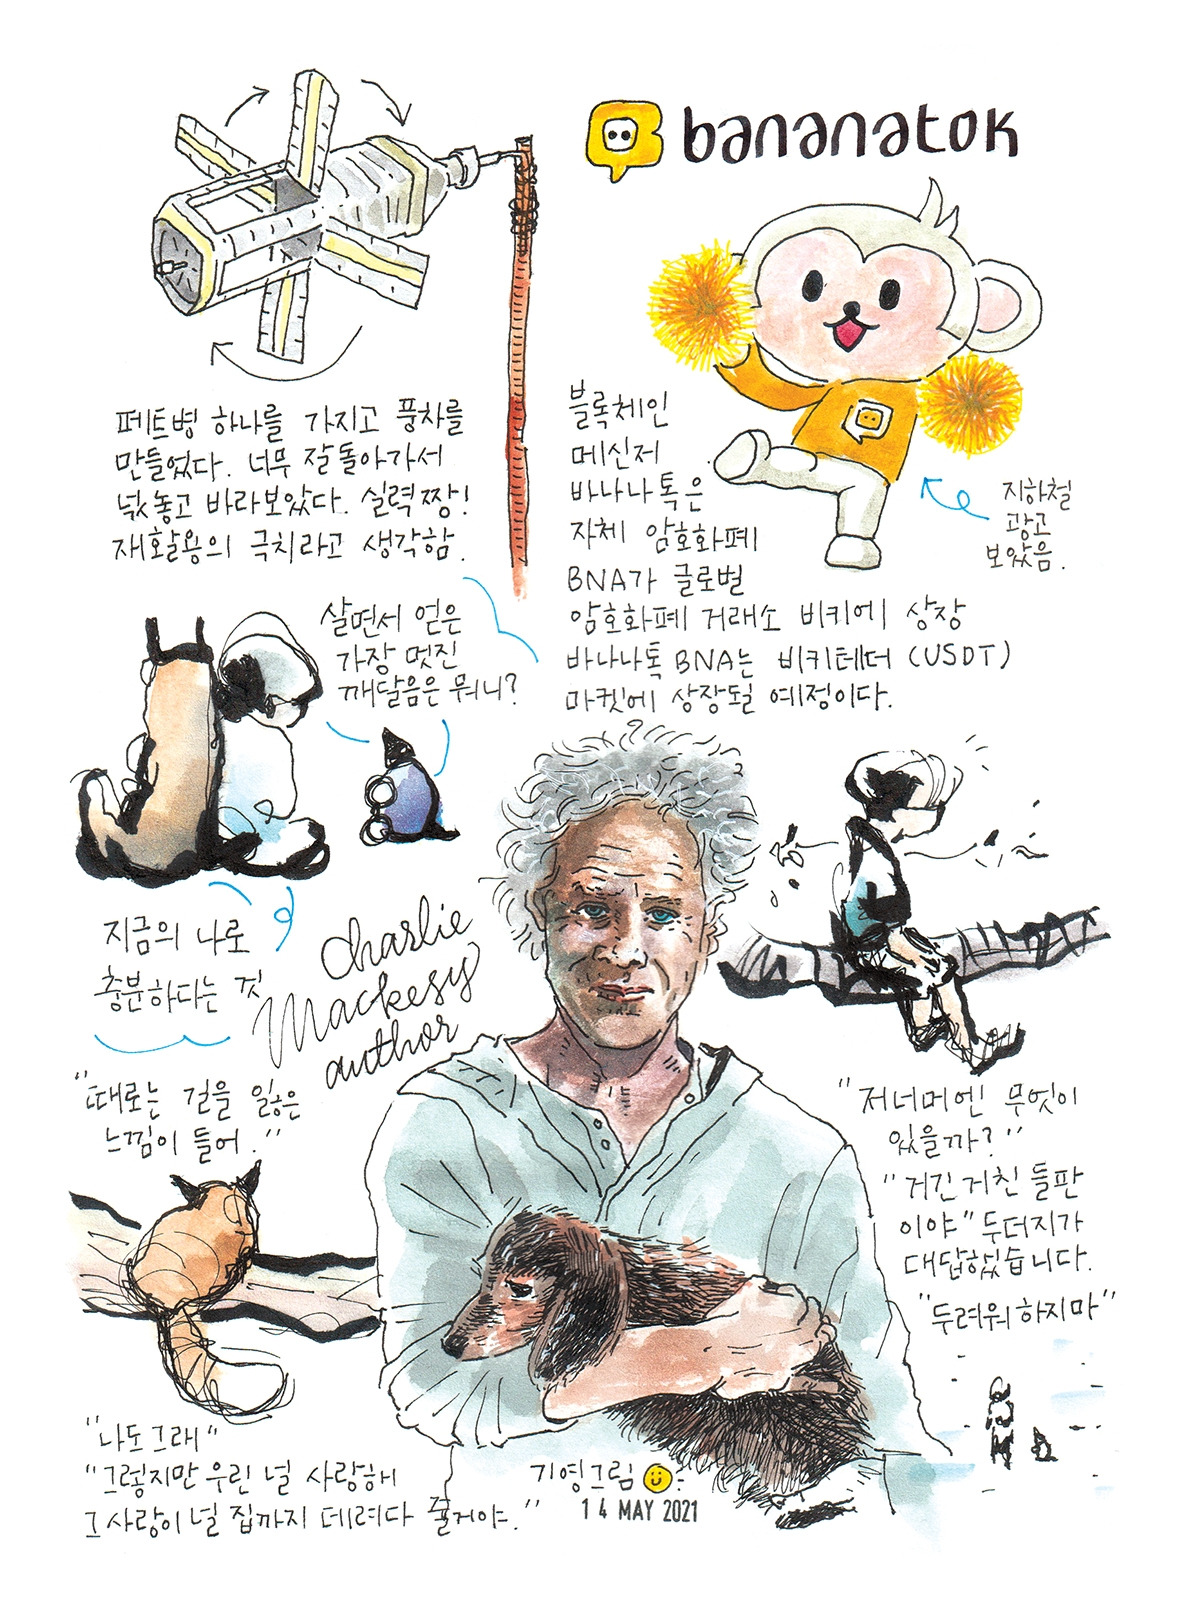 페트병 하나를 가지고 풍차를
만들었다. 너무 잘 돌아가서
넋놓고 바라보았다. 실력짱!
재활용의 극치라고 생각함.
bananatok
블록체인
메신저
바나나톡은
자체 암호화폐
BNA가 글로벌
암호화폐 거래소 비키에 상장
바나나톡 BNA는 비키테더 (USDT)
마켓에 상장될 예정이다.
지하철
광고
보았음.
살면서 얻은
가장 멋진
깨달음은 뭐니?
지금의 나로
충분하다는 것
Charlie
Mackesy
author
"때로는 길을 잃은
느낌이 들어."
"나도 그래"
"그렇지만 우린 널 사랑해
그 사랑이 널 집까지 데려다 줄거야."
"저 너머엔 무엇이
있을까?"
"거긴 거친 들판
이야" 두더지가
대답했습니다.
"두려워 하지마"
기영그림
14 MAY 2021